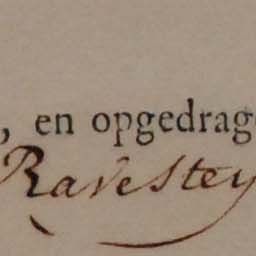 , en opgedrag
Ravestey